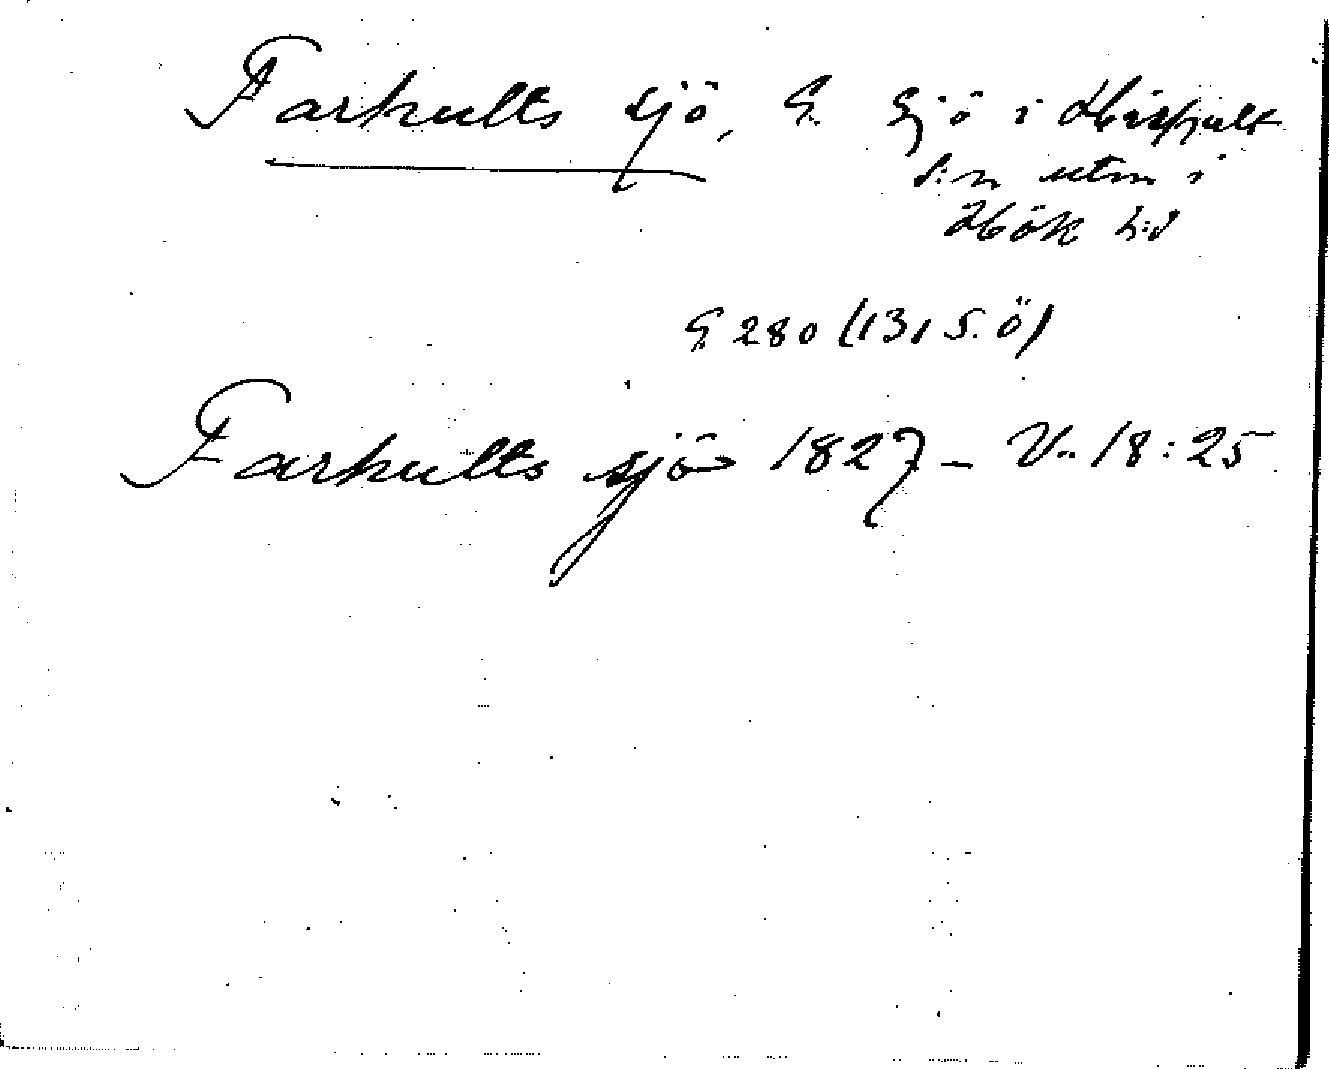 Farhults sjö, G. Sjö i Hishult
s:n utm i
Hök h:d
G 280 (131 S. Ö)
Farhults sjö 1827 – V. 18:25